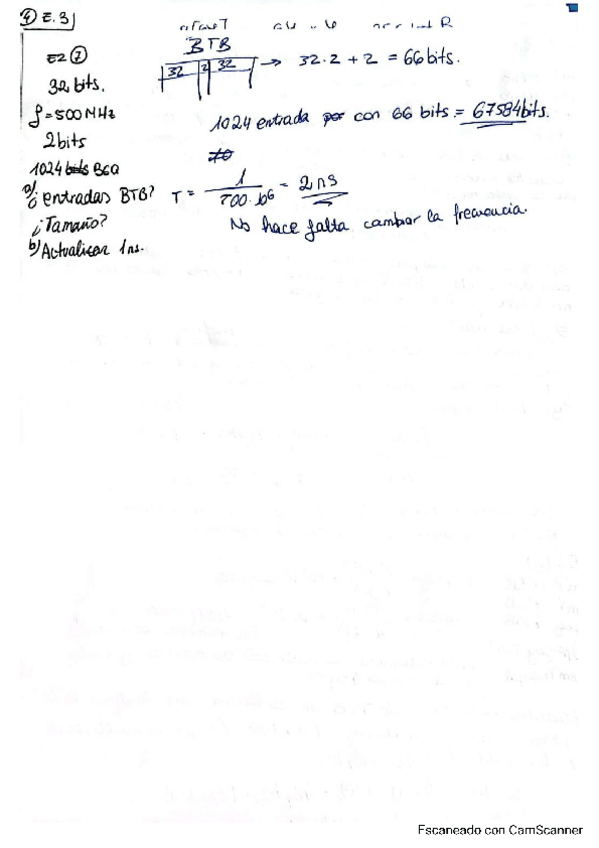 ④ E.3
E2 ⑦
32 bits.
f = 500 MHz
2 bits
1024 bits BGQ
a) ¿entradas BTB?
¿Tamaño?
b) Actualizar 1ns.
BTB
32 2 32 → 32·2 + 2 = 66 bits.
1024 entrada por con 66 bits = 67584 bits.
T = 1 / 500·10⁶ = 2 ns
No hace falta cambiar la frecuencia.
Escaneado con CamScanner